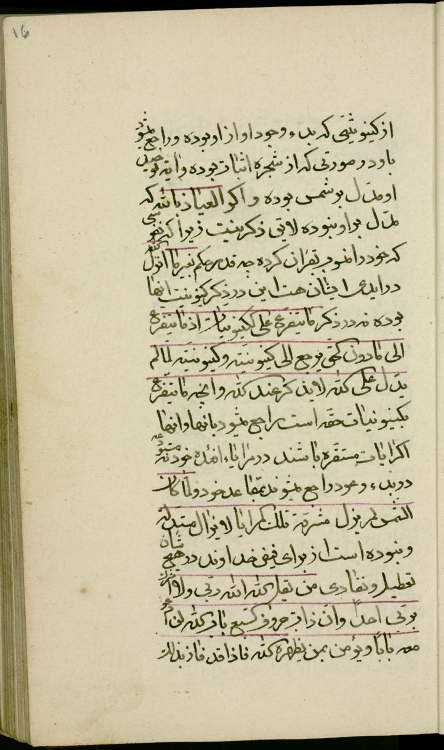 16
از کینونیتی که بدء وجود او از او بوده و راجع
باو در صورتی که از شجره اثبات بوده و آیه توحید
او مدل بر شمس بوده و اگر العیاذ بالله که
مدل بر او نبوده لایق ذکر نیست زیرا که
که خود را مؤمن بقران کرده چه قدر حکم
در ایشان هست این در ذکر کینونیت انها
بوده نه در ذکر ما یتفرع علی الکینونیات اذ ما یتفرع
الی ما دون لحق یرجع الی کینونیته و کینونیته لما لم
یدل علی الله لا یذکر عند الله و انچه ما یتفرع
بکینونیات حقه است راجع میشود بانها و انها
اکر ایات مستقره باشند در مرایاء افئده خود
در بدء و عود راجع میشوند بمقاعد خود و لما کان
الشمس لم یزل مشرقة تلک المرایا لا یزال
و نبوده است از برای فیض خداوند در هیچ شان
تعطیل و نفادی من یقل الله الله ربی و لا اشرک
بربی احدا وان ذات حروف السبع باب الله
معه بابا و یؤمن بمن یظهره الله فاذا قد فاز بذلک